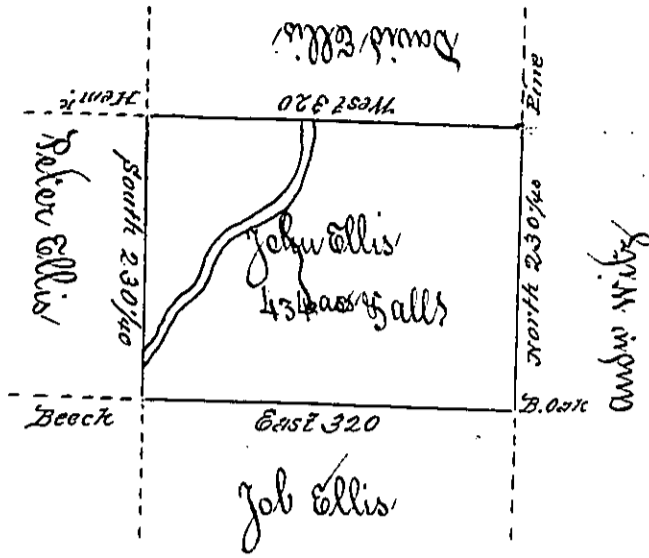 David Ellis
Hemˡᶜ
West 320
Pine
Peter Ellis
South 230¼0
John Ellis
434 acs & alls
North 230¼0
Andw Witz
Beech
East 320
B.Oak
Job Ellis